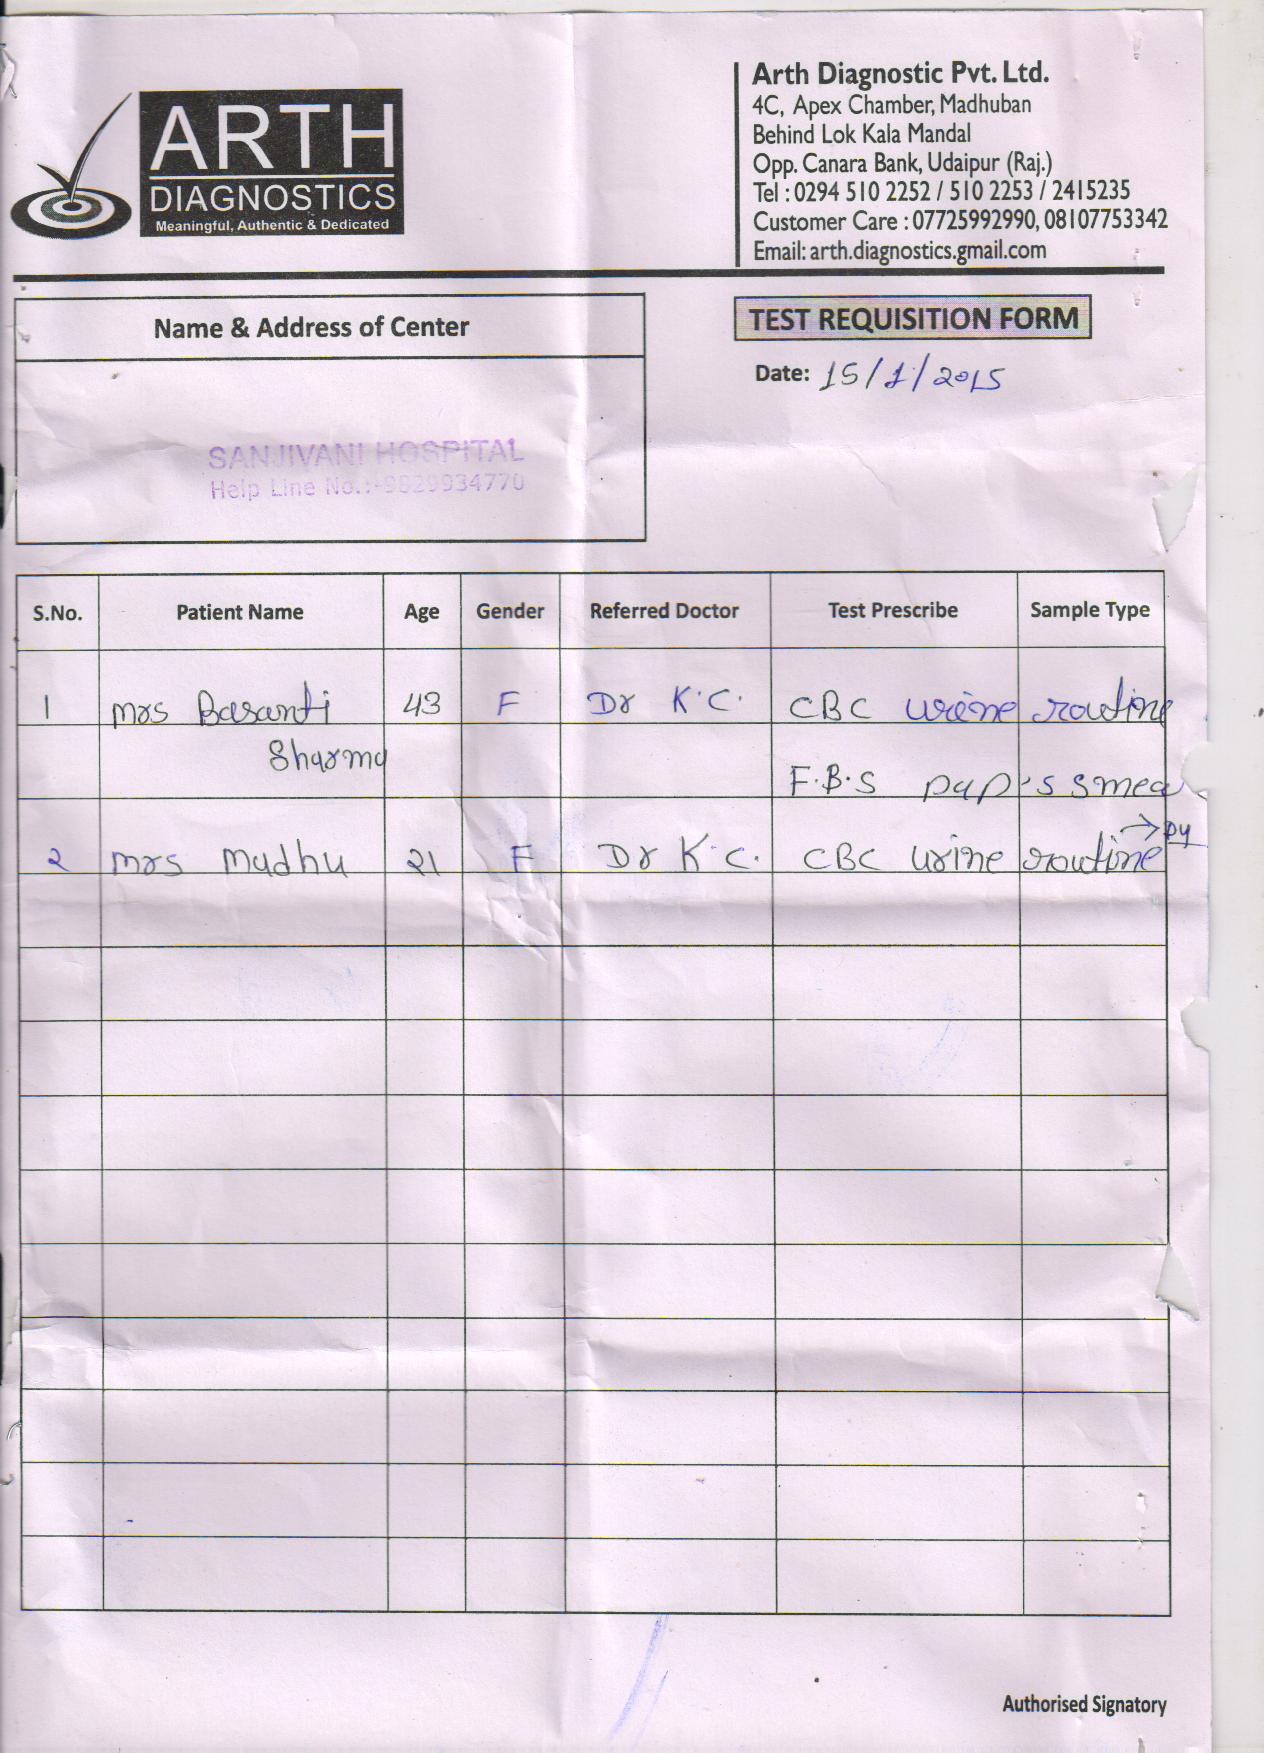 ARTH
DIAGNOSTICS
Meaningful, Authentic & Dedicated
Arth Diagnostic Pvt. Ltd.
4C, Apex Chamber, Madhuban
Behind Lok Kala Mandal
Opp. Canara Bank, Udaipur (Raj.)
Tel : 0294 510 2252 / 510 2253 / 2415235
Customer Care : 07725992990, 08107753342
Email: arth.diagnostics.gmail.com
Name & Address of Center
TEST REQUISITION FORM
Date: 15/1/2015
SANJIVANI HOSPITAL
Help Line No.:-9829934770
S.No. Patient Name Age Gender Referred Doctor Test Prescribe Sample Type
1 mrs Basanti 43 F Dr K.C. CBC urine routine
Sharma
F.B.S pap's smea
2 mrs Madhu 21 F Dr K.C. CBC urine routine
Authorised Signatory